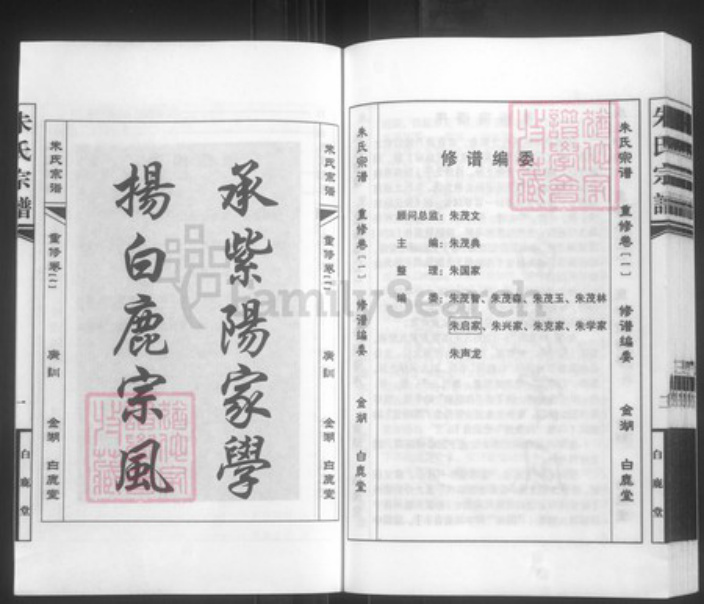 朱氏宗譜
白鹿堂
朱氏宗谱
重修卷(一)
金湖
白鹿堂
揚白鹿宗風
承紫陽家學
朱氏宗谱
重修卷(一)
廣訓
金湖
白鹿堂
FamilySearch
朱氏宗谱
重修卷(一)
修谱编委
金湖
白鹿堂
修谱编委
顾问总监：朱茂文
主 编：朱茂典
整 理：朱国家
编 委：朱茂智、朱茂森、朱茂玉、朱茂林
朱启家、朱兴家、朱克家、朱学家
朱声龙
朱氏宗谱
重修卷(一)
修谱编委
金湖
白鹿堂
朱氏宗譜
二
白鹿堂